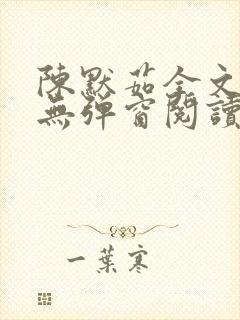 陳默茹全文
無彈窗閱讀
一葉寒